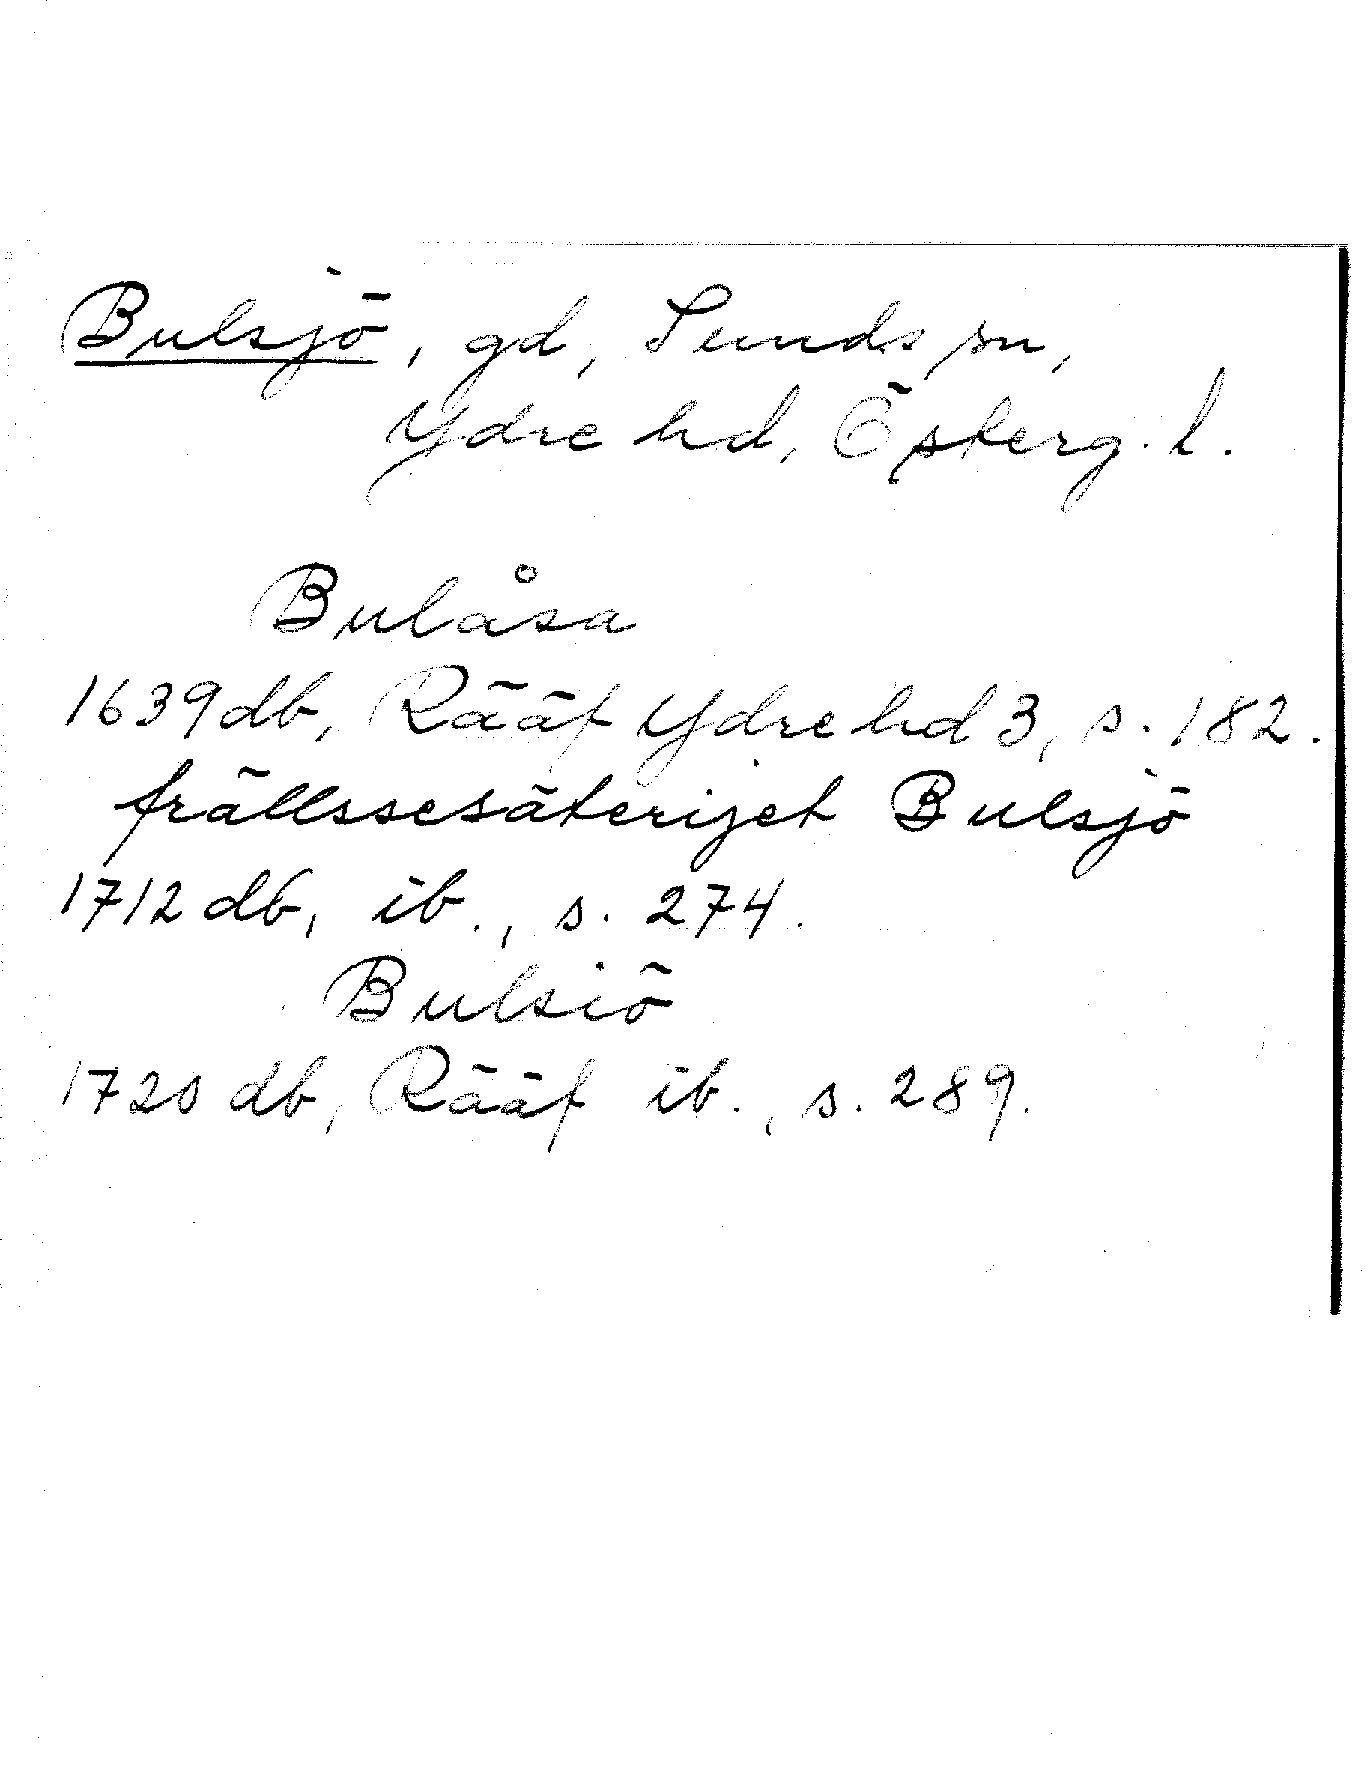 Bulsjö, gd, Sunds sn,
Ydre hd, Österg. l.
Bulåsa
1639 db, Rääf Ydre hd 3, s. 182.
frällssesäterijet Bulsjö
1712 db, ib., s. 274.
Bulsiö
1720 db, Rääf ib., s. 289.